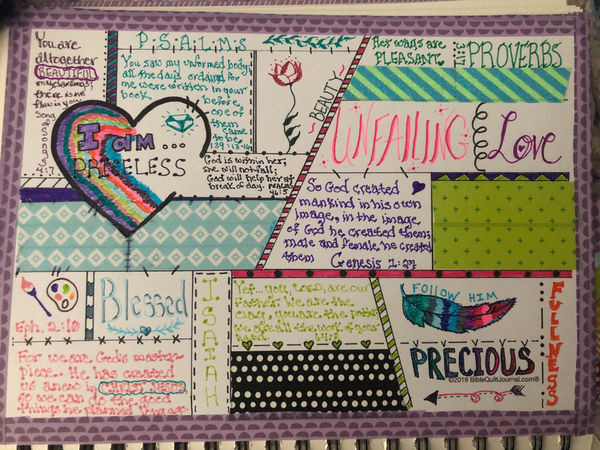 You are
altogether
BEAUTIFUL
my darling;
there is no
flaw in you
Song
of
Songs
4:7
P S A L M S
You saw my unformed body;
all the days ordained for
me were written in your
book
before
one of
them
came
to be
139:13-16
BEAUTY
Her ways are
PLEASANT
PROVERBS
I am...
PRICELESS
God is within her,
she will not fall;
God will help her at
break of day. PSALMS
46:5
UNFAILING
Love
So God created
mankind in his own
image, in the image
of God he created them;
male and female he created
them Genesis 1:27
Eph. 2:10
For we are God's master-
piece. He has created
us anew in CHRIST JESUS
so we can do the good
things he planned long ago.
Blessed
ISAIAH
Yet, you, LORD, are our
Father. We are the
clay, you are the potter;
we are all the work of your
hand.
FOLLOW HIM
FULLNESS
PRECIOUS
©2019 BibleQuiltJournal.com®